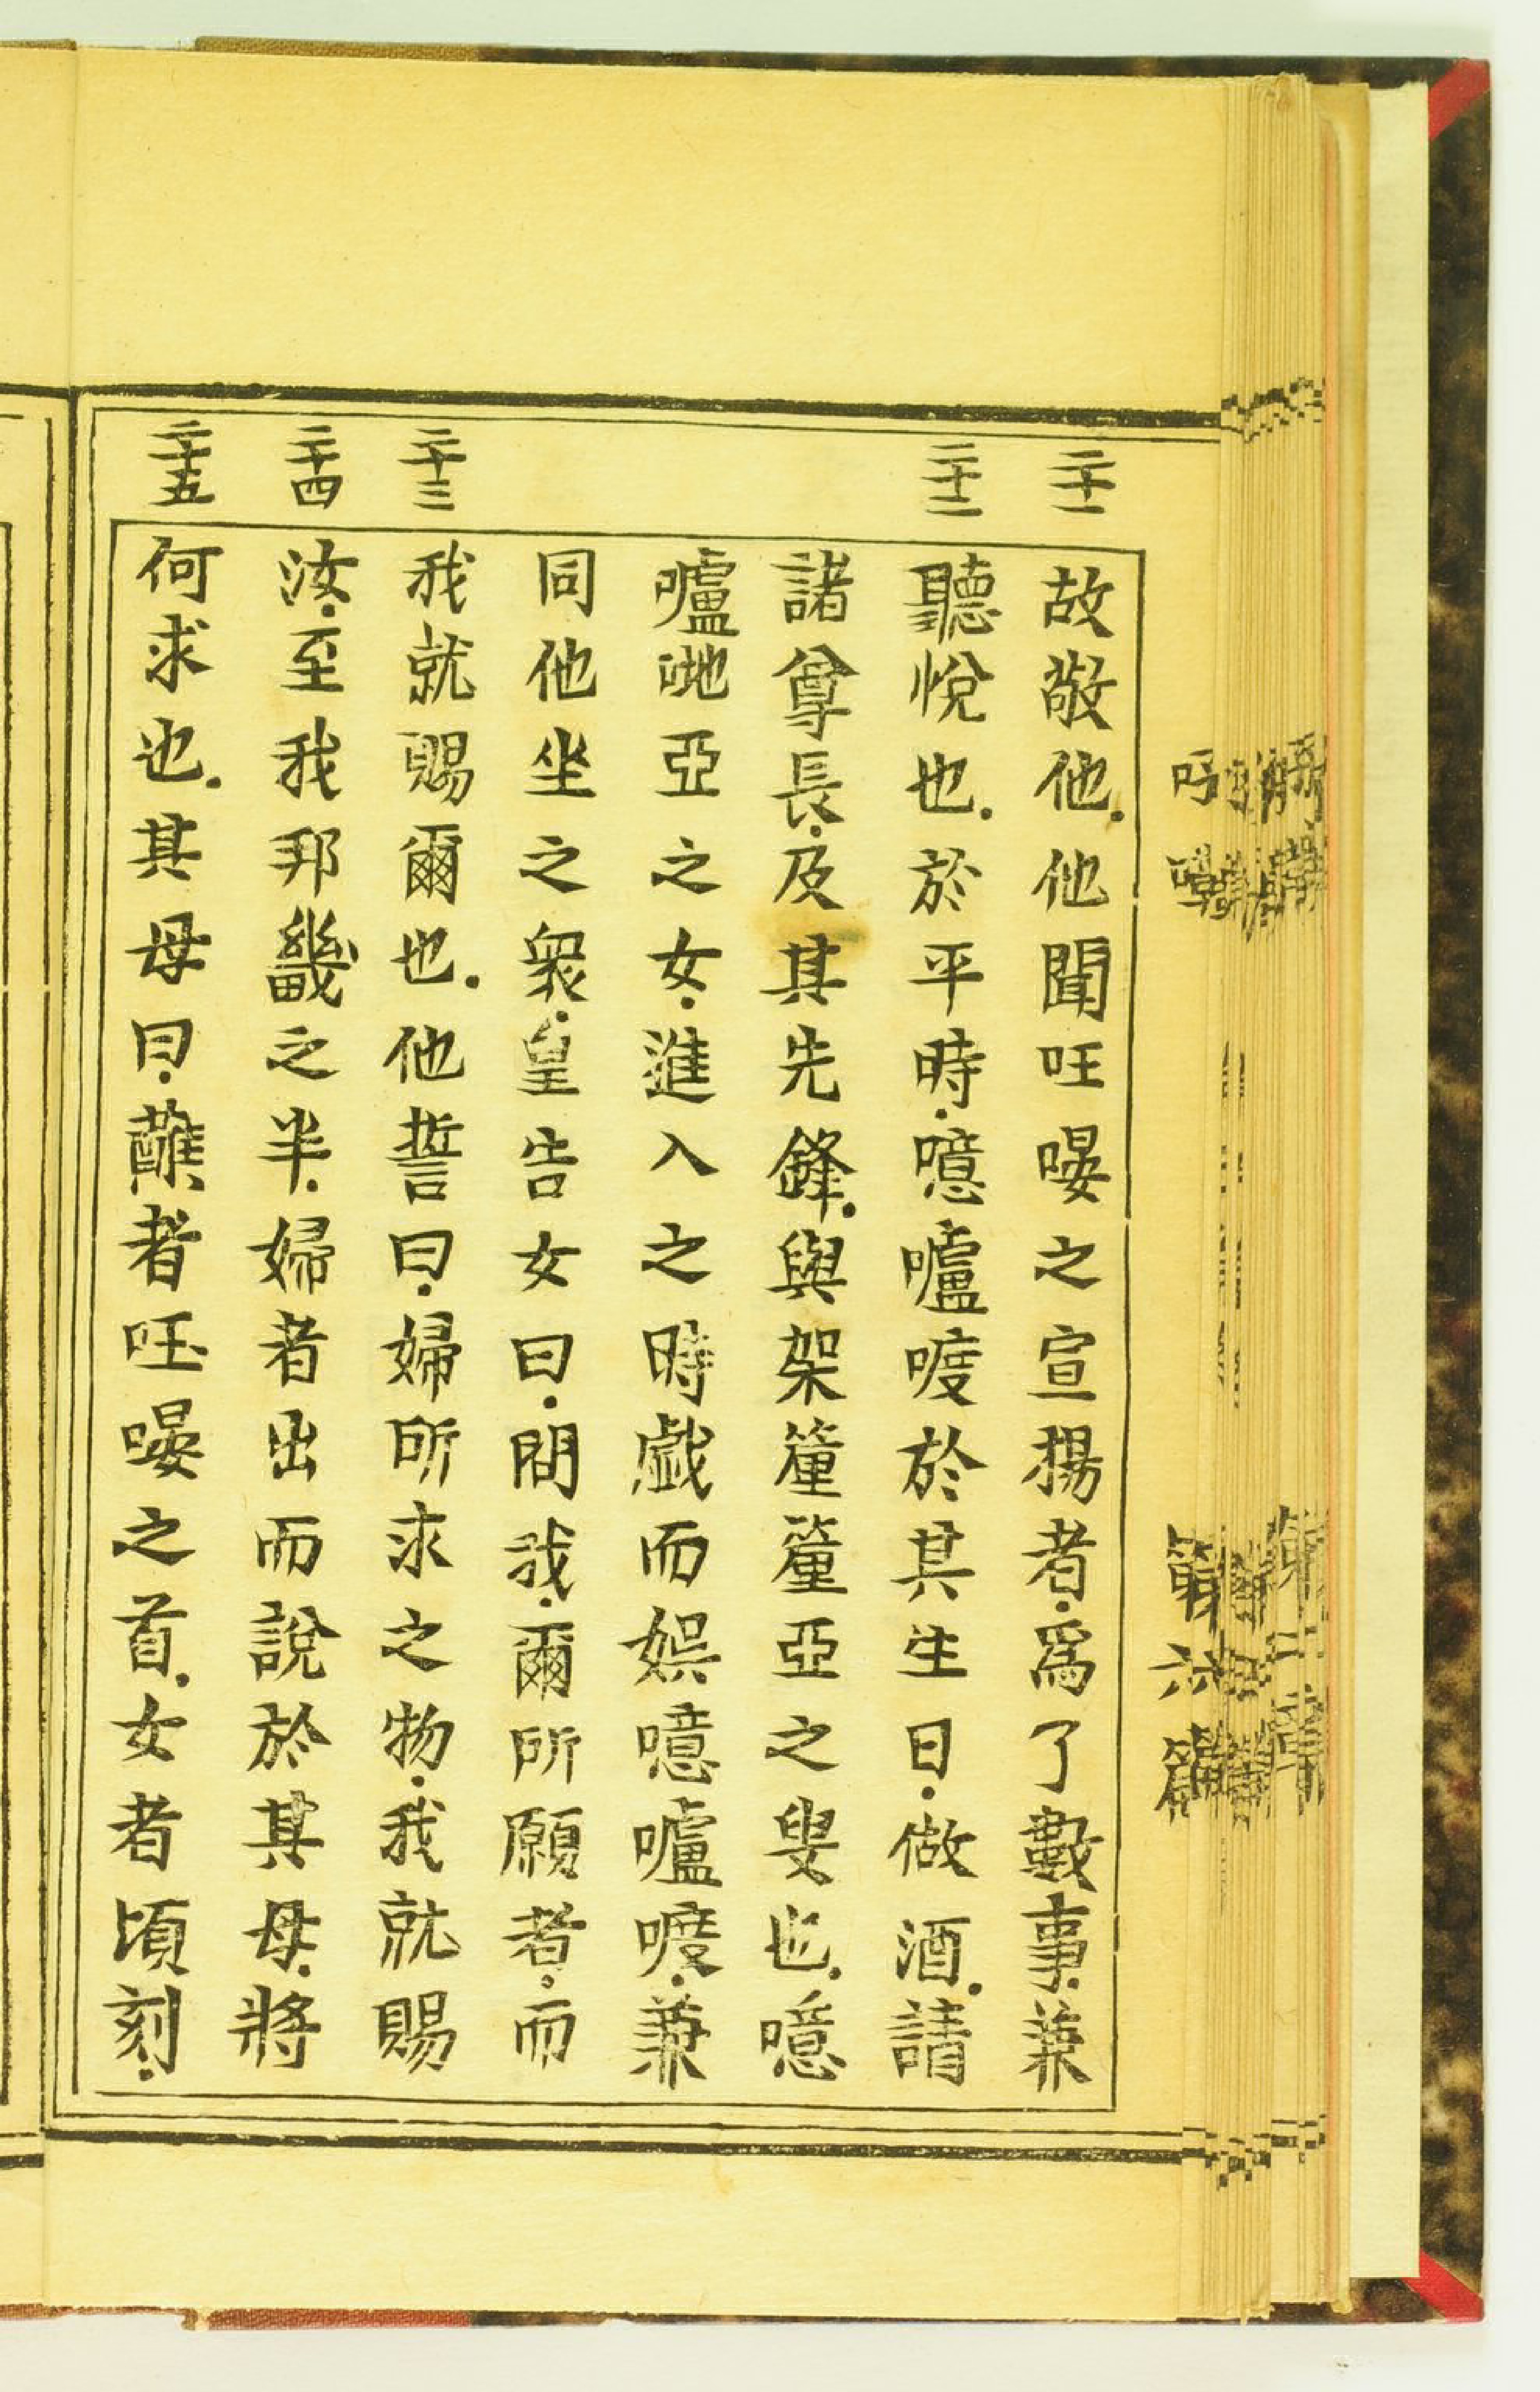 二十一
故敬他．他聞㕵㖧之宣揚者．爲了數事．兼
二十二
聽悅也．於平時．噫嚧㖡於其生日．做酒．請
諸尊長．及其先鋒．與架𥫗𥫗亞之叟也．噫
嚧哋亞之女．進入之時戲而娯噫嚧㖡．兼
同他坐之衆．皇告女曰．問我．爾所願者．而
二十三
我就賜爾也．他誓曰．婦所求之物．我就賜
二十四
汝．至我邦畿之半．婦者出而說於其母．將
二十五
何求也．其母曰．蘸者㕵㖧之首．女者頃刻．
第六篇